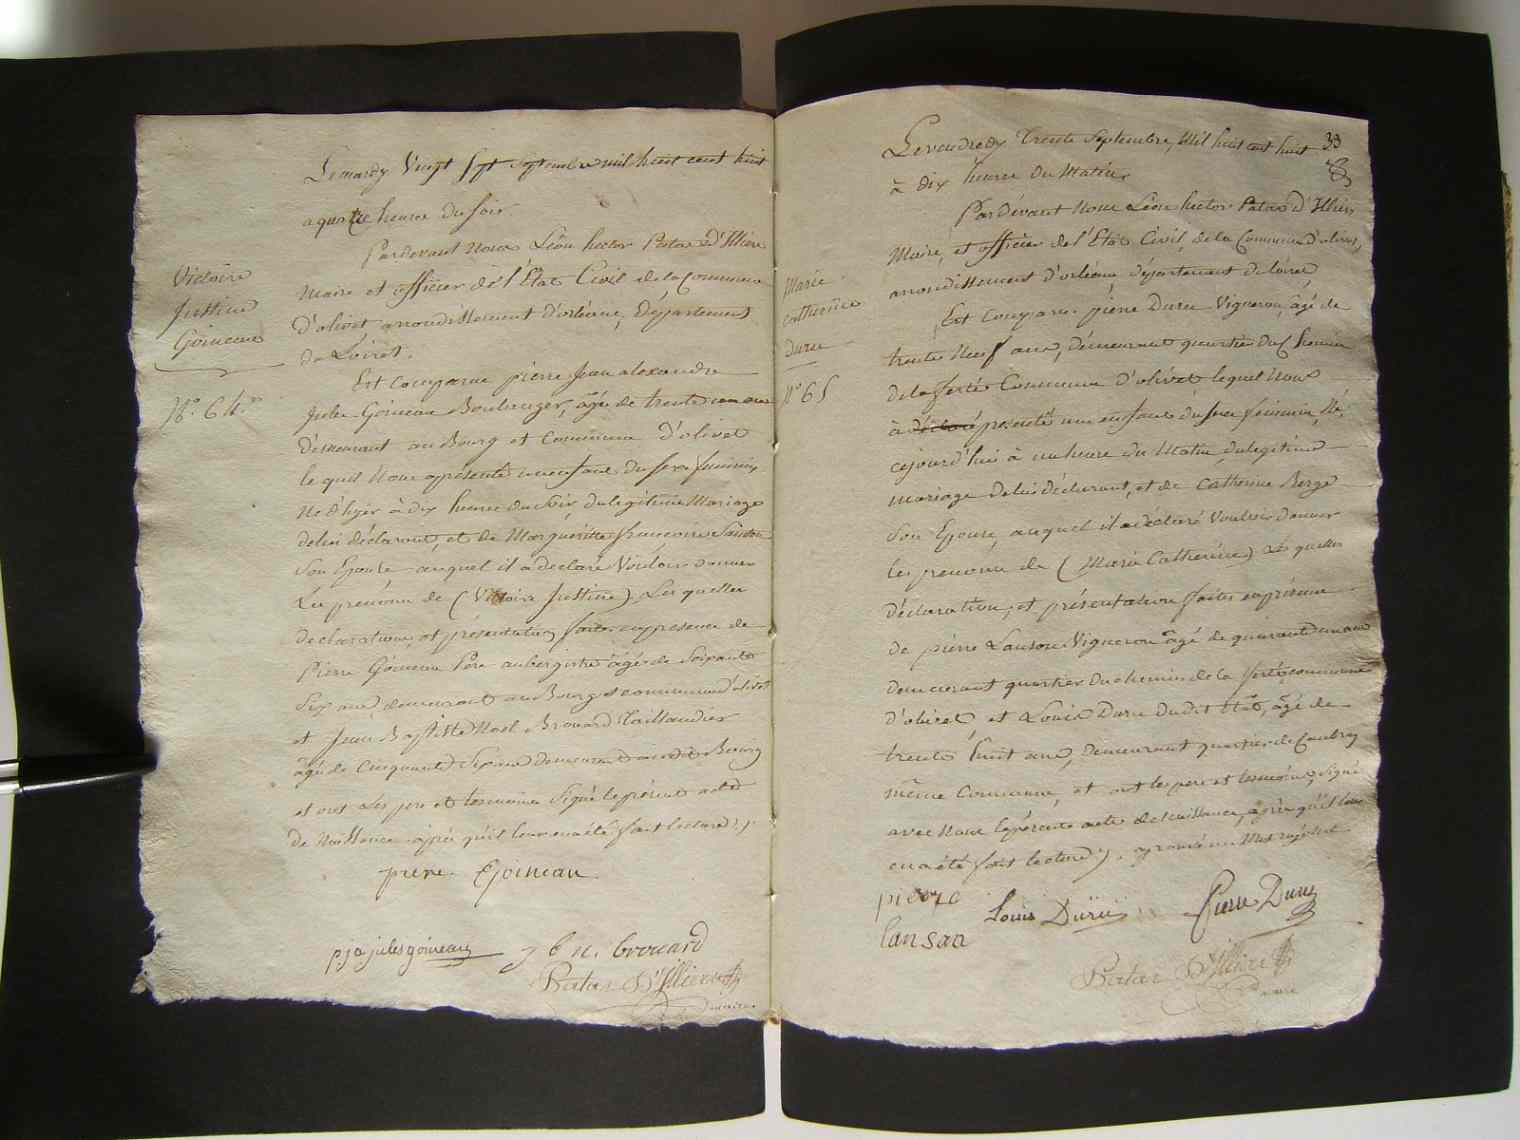 Victoire
Justine
Goineau
N.° 64.
Le mardy Vingt Sept Septembre mil huit cent huit
a quatre heures du Soir
Pardevant Nous Léon hector Patas D'Illiers
Maire et officier de l'Etat Civil de la Commune
d'olivet arrondissement d'orléans, Département
du Loiret.
Est Comparu pierre Jean alexandre
Jules Goineau Boulanger, âgé de trente un ans
demeurant au Bourg et Commune d'olivet
le quel Nous a présenté un enfant du sexe feminin
Né d'hyer à dix heures du Soir, du legitime Mariage
de lui déclarant, et de Margueritte françoise
Son Epouse auquel il a déclaré Vouloir donner
Les prenoms de (Victoire Justine) Les quelles
declarations, et présentation faites en presence de
Pierre Goineau Pere aubergiste âgé de Soixante
Six ans, demeurant au Bourg et commune d'olivet
et Jean Baptiste Noel Brouard Taillandier
âgé de Cinquante Six ans demeurant audit Bourg
et ont Les pere et temoins Signé le présent acte
de Naissance après qu'il leur en a été fait lecture ./.
pierre Goineau
pja jules goineau j b n. brouard
Patas D'Illiers
maire
33
Marie
Catherine
Duru
N.° 65
Le vendredy Trente Septembre, Mil huit cent huit
à dix heures du Matin
Pardevant Nous Léon hector Patas D'Illiers
Maire, et officier de l'Etat Civil, de la Commune d'olivet,
arrondissement d'orléans, département du loiret
Est Comparu pierre Duru Vigneron, âgé de
trente Neuf ans, demeurant quartier du Chemin
de la ferté Commune d'olivet lequel Nous
à déclaré présenté un enfant du sexe feminin, Né,
cejourd'hui à une heure du Matin, du legitime
mariage de lui déclarant, et de Catherine Berge
Son Epouse, auquel il a déclaré Vouloir donner
les prenoms de (Marie Catherine) Les quelles
déclaration, et présentation faites en présence
de pierre Lanson Vigneron âgé de quarante un ans
demeurant quartier du chemin de la ferté, commune
d'olivet, et Louis Duru dudit Etat, âgé de
trente huit ans, demeurant quartier de
même Commune, et ont les pere et temoins, Signé
avec Nous le présent acte de Naissance, après qu'il leur
en a été fait lecture ./. aprouvé un Mot rayé nul
pierre
lansan
Louis Duru
Pierre Duru
Patas D'Illiers
maire